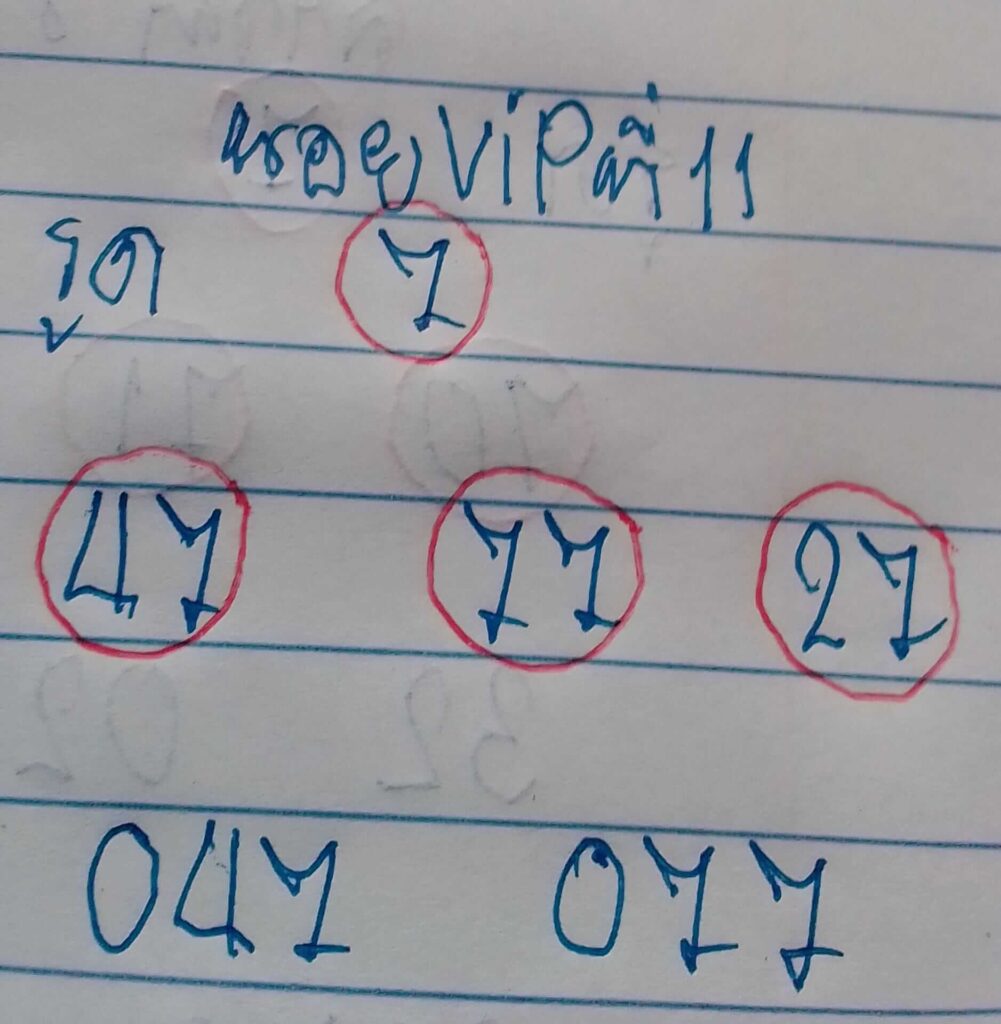 หรอย ViP ที่ 11
รูด 7
47 77 27
047 077